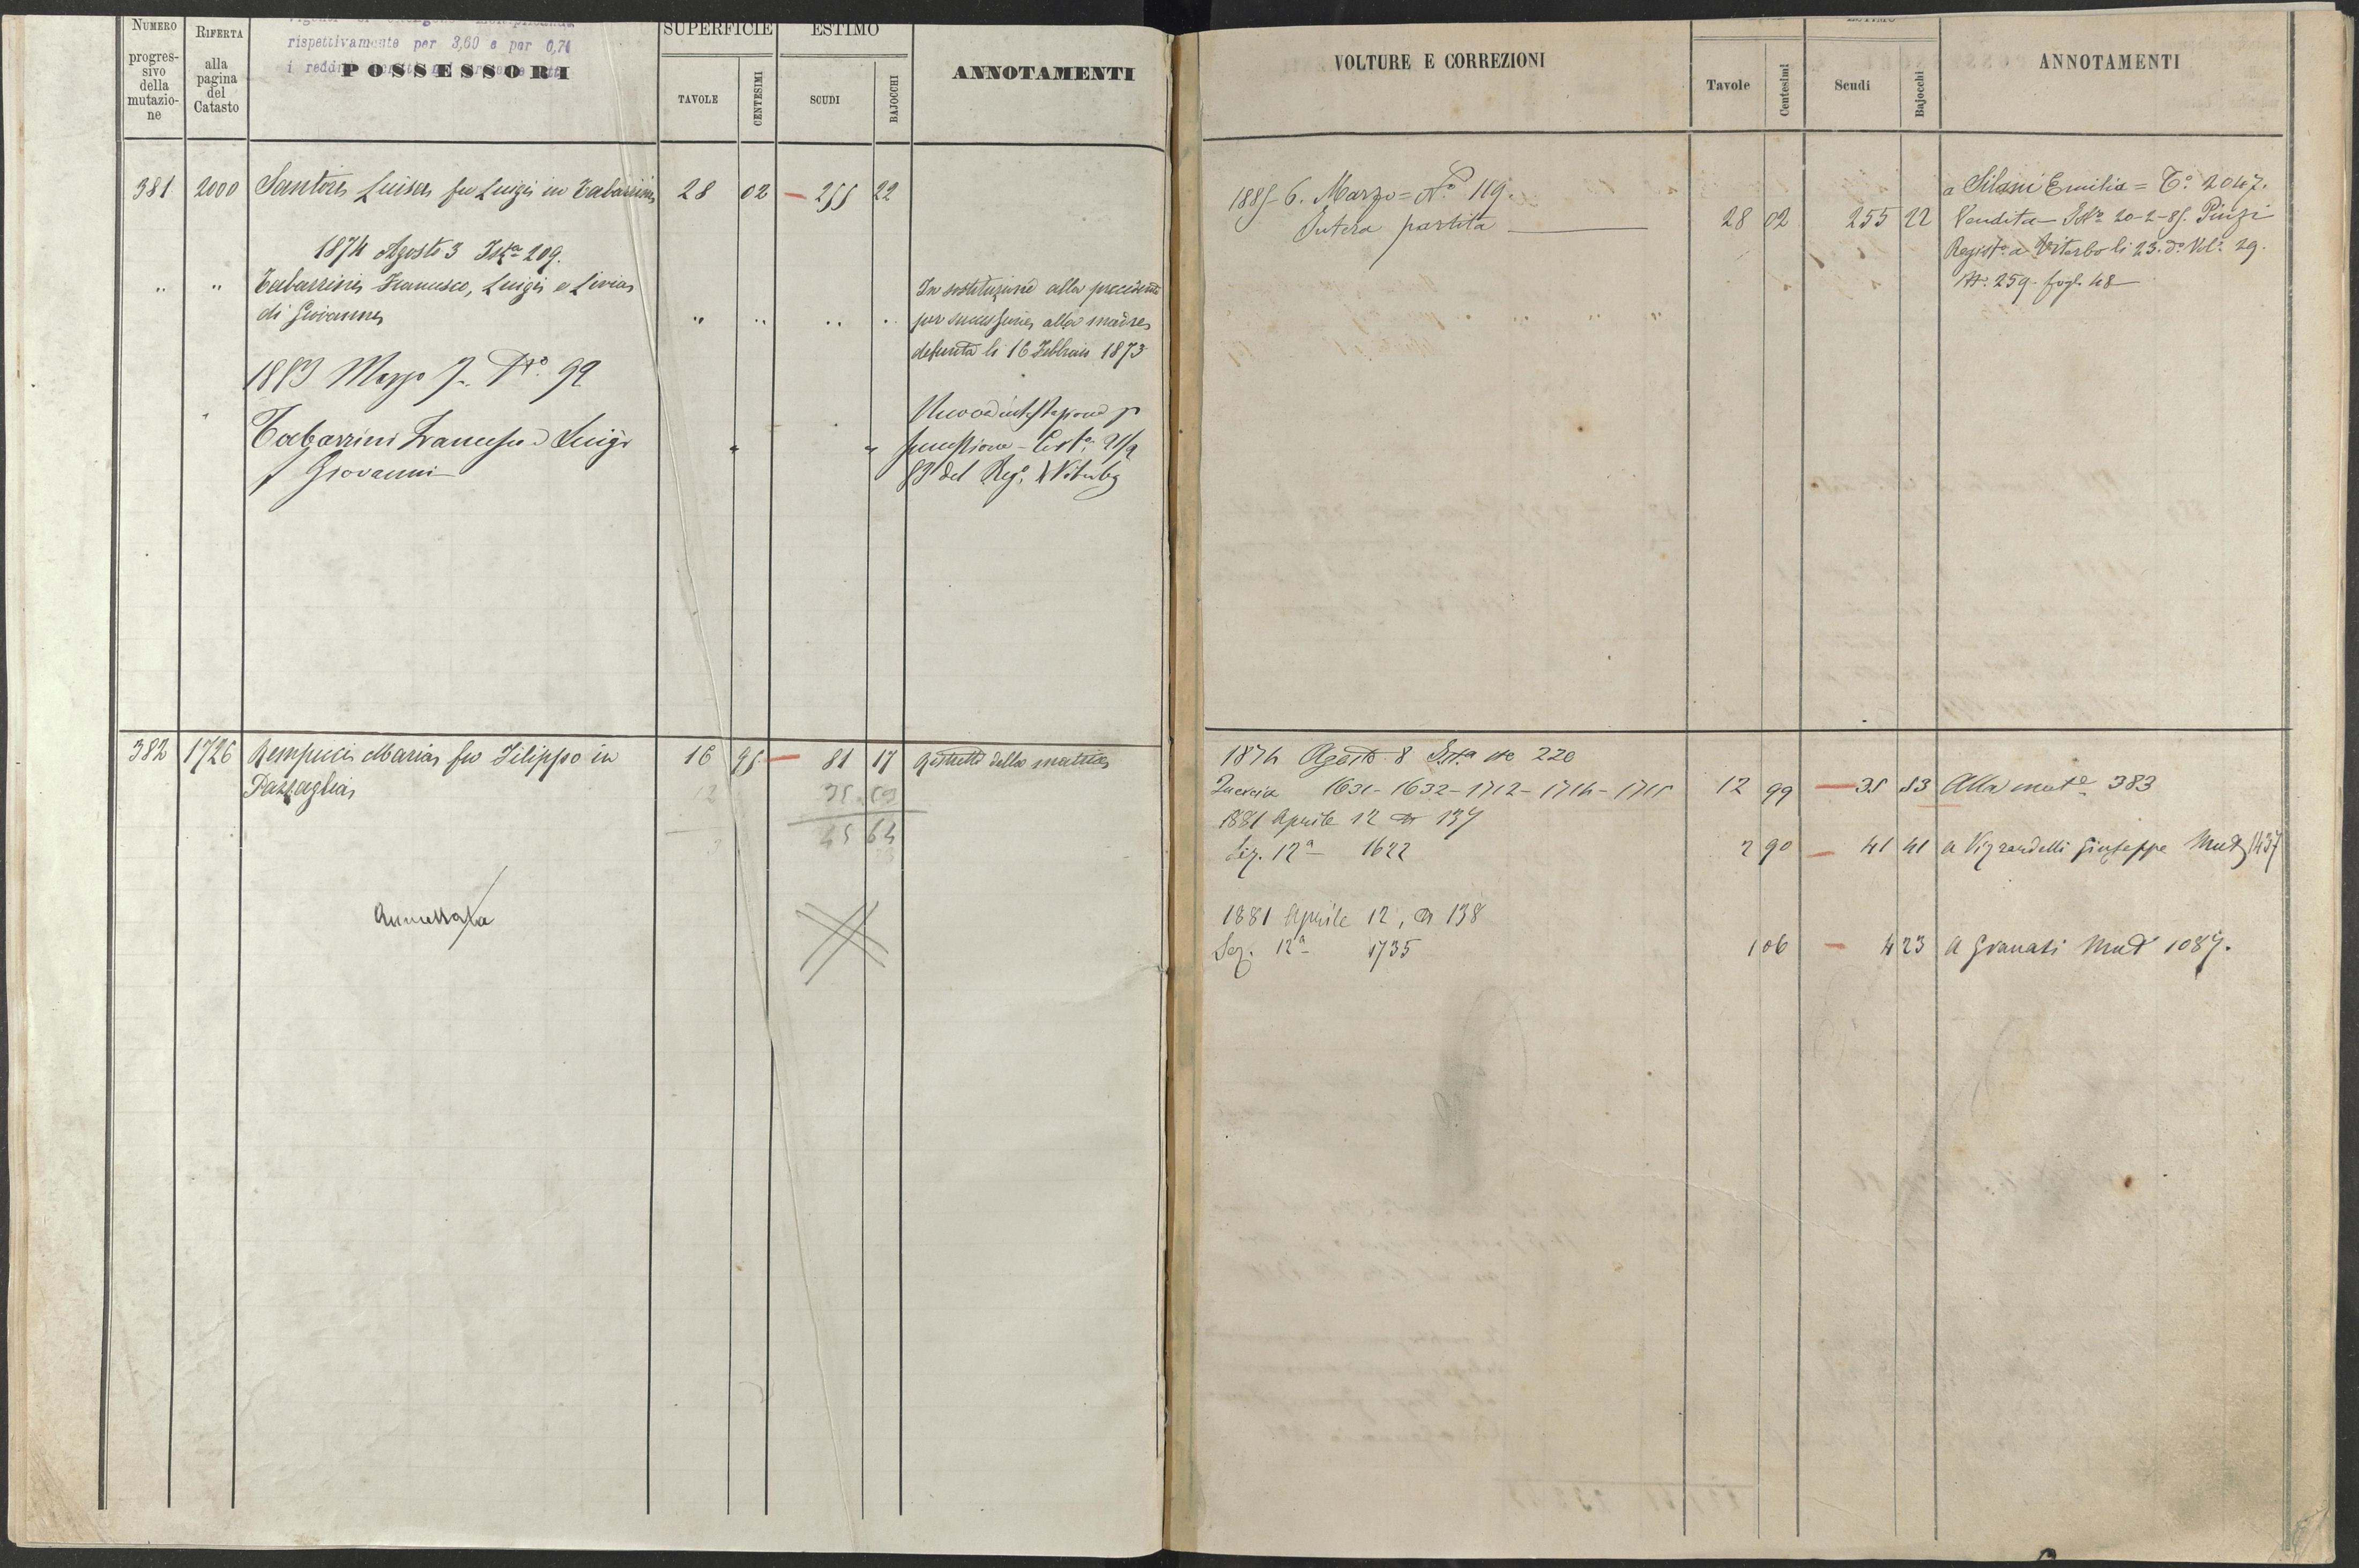 NUMERO
progres-
sivo
della
mutazio-
ne
RIFERTA
alla
pagina
del
Catasto
rispettivamente per 3,60 e per 0,71
i reddi
POSSESSORI
SUPERFICIE
TAVOLE
CENTESIMI
ESTIMO
SCUDI
BAJOCCHI
ANNOTAMENTI
381 2000 Santori Luisa fu Luigi in Tabarrini 28 02 255 22
1874 Agosto 3 Ista 209.
" " Tabarrini Francesco, Luigi e Livia
di Giovanni " " " "
In sostituzione alla precedente
per successione alla madre
defunta li 16 Febbraio 1873
1883 Marzo 7. No. 99
" Tabarrini Francesco Luigi
Giovanni " "
Nuova intestazione p
successione
83 del Rego
382 1726 Rempicci Maria fu Filippo in 16 95 81 17 Ristretto della matrice
Pazzaglia
12 35 53
45 64
Annullata
VOLTURE E CORREZIONI
Tavole
Centesimi
Scudi
Bajocchi
ANNOTAMENTI
1885 6. Marzo = No. 119.
Intera partita 28 02 255 22
a Silani Emilia = To. 2047.
Vendita 20-2-85. Pinzi
Registo. a Viterbo li 23. do. Vol. 29.
No. 259 fogl. 48
1874 Agosto 8 Ista No 220
Quercia 1631-1632-1712-1714-1715 12 99 35 53 Alla muta 383
1881 Aprile 12 N 137
Sez. 12a 1622 2 90 41 41 a Vizzardelli Giuseppe Mut 1437
1881 Aprile 12, N 138
Sez. 12a 1735 1 06 4 23 a Granati Mut 1087.